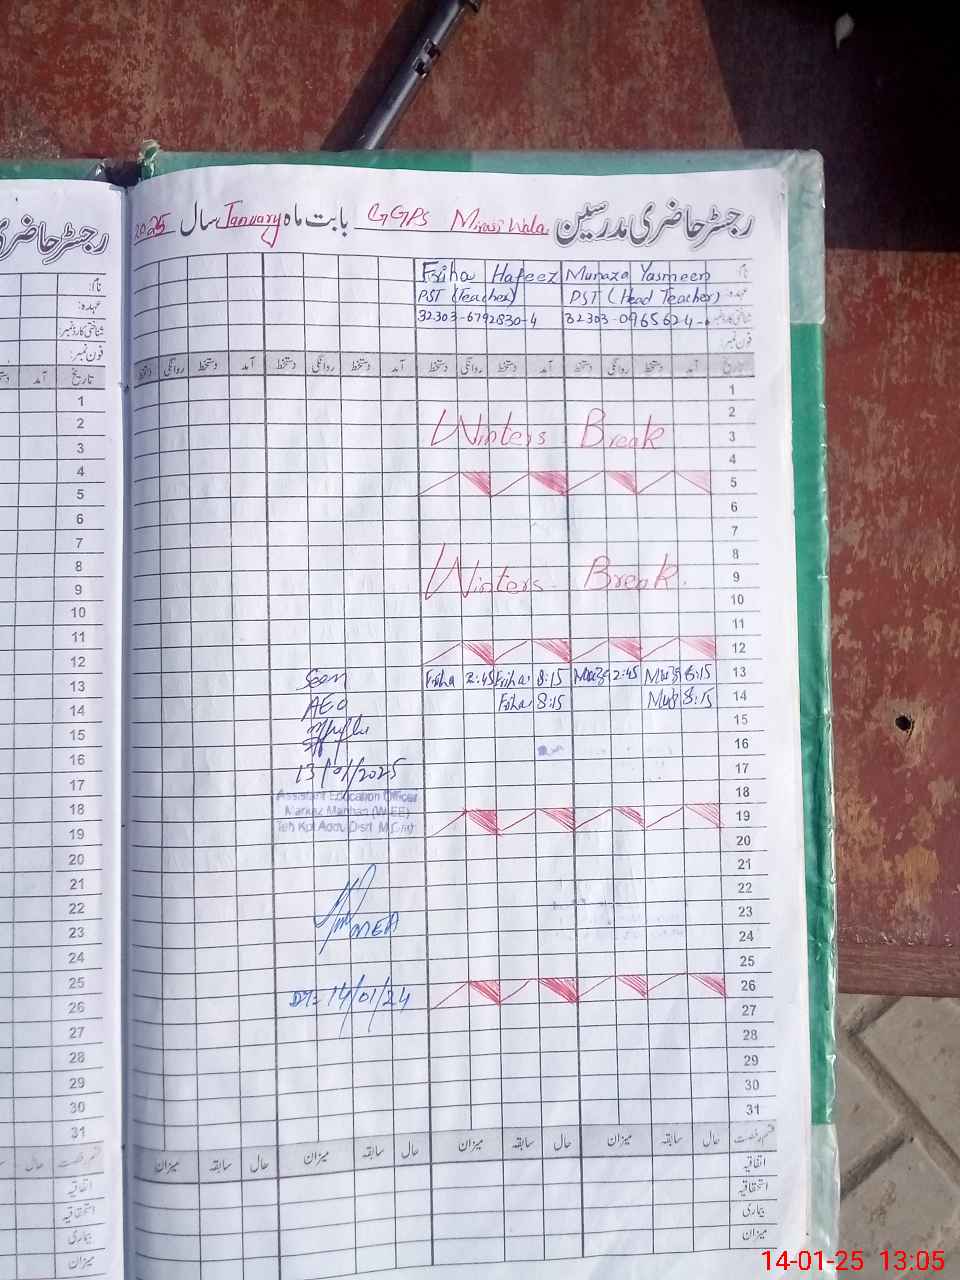 رجسٹر حاضری مدرسین GGPS Mirasi Wala بابت ماہ January سال 2025
نام: Munaza Yasmeen Friha Hafeez
عہدہ: PST (Head Teacher) PST (Teacher)
شناختی کارڈ نمبر: 32303-0965624- 32303-6792830-4
فون نمبر:
تاریخ آمد دستخط روانگی دستخط آمد دستخط روانگی دستخط آمد دستخط روانگی دستخط آمد دستخط روانگی دستخط
1
2
3 Winters Break
4
5
6
7
8
9 Winters Break.
10
11
12
13 8:15 2:45 8:15 Friha 2:45 Friha Seen
14 8:15 8:15 Friha AEO
15
16
17 13/01/2025
18 Assistant Education Officer
19
20
21
22
23 MEA
24
25
26 Dt= 14/01/24
27
28
29
30
31
قسم رخصت حال سابقہ میزان حال سابقہ میزان حال سابقہ میزان حال سابقہ میزان
اتفاقیہ
استحقاقیہ
بیماری
میزان
رجسٹر حاضری
نام:
عہدہ:
شناختی کارڈ نمبر:
فون نمبر:
تاریخ آمد
1
2
3
4
5
6
7
8
9
10
11
12
13
14
15
16
17
18
19
20
21
22
23
24
25
26
27
28
29
30
31
قسم رخصت حال
اتفاقیہ
استحقاقیہ
بیماری
میزان
14-01-25 13:05